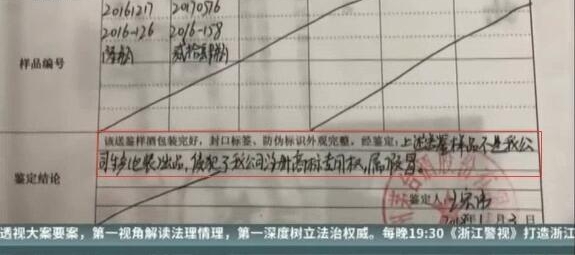 20161217 20170516
2016-126 2016-158
样品编号
该送鉴样酒包装完好，封口标签、防伪标识外观完整，经鉴定：上述送鉴样品不是我公
司生产(包装)出品，侵犯了我公司注册商标专用权，属假冒。
鉴定结论
鉴定人
透视大案要案，第一视角解读法理情理，第一深度树立法治权威。每晚19:30《浙江警视》打造浙江